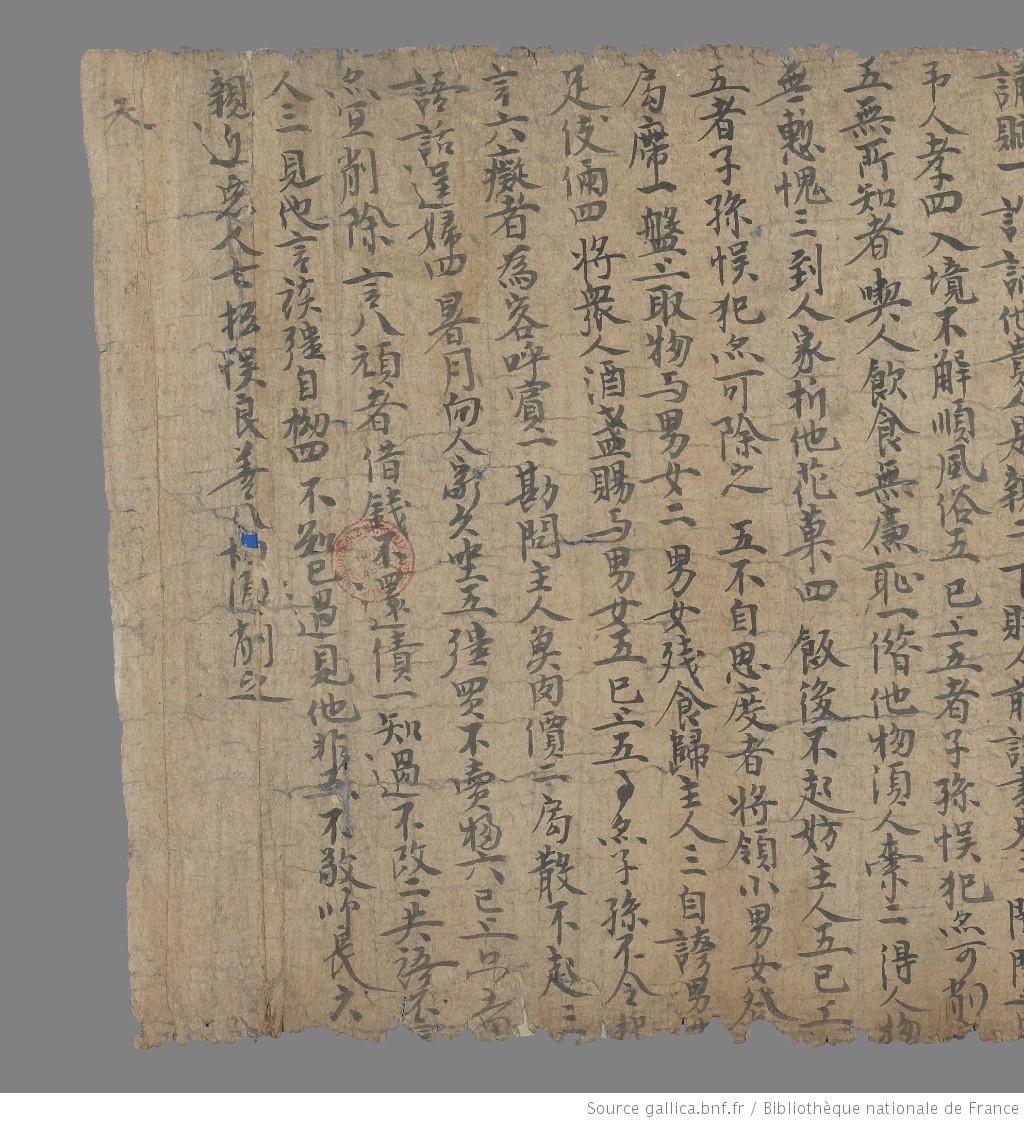 誦賦一 說話他貴人是親二下賤人前說妻兒三
弔人孝四入境不解順風俗五已上五者子孫悞犯然可削
五無所知者喫人飲食無廉恥一偺他物須人索二得人物
無慙愧三到人家折他花菓四飯後不起妨主人五已上
五者子孫悞犯然可除之 五不自思度者將領小男女
局席一盤上取物与男女二男女殘食歸主人三自誇男女
足伎倆四將衆人酒盞賜与男女五已上五事然子孫不令
言六癡者爲客呼賓一勘問主人魚肉價二局散不起三
語話逞婦四暑月向人家久坐五強買不賣物六已上
然宜削除 言八頑者借錢不還債一知過不改二共語不
人三見他言談強自拗四不知己過見他非五不敬師長六
親近惡人七招悮良善八 削之
天
Source gallica.bnf.fr / Bibliothèque nationale de France